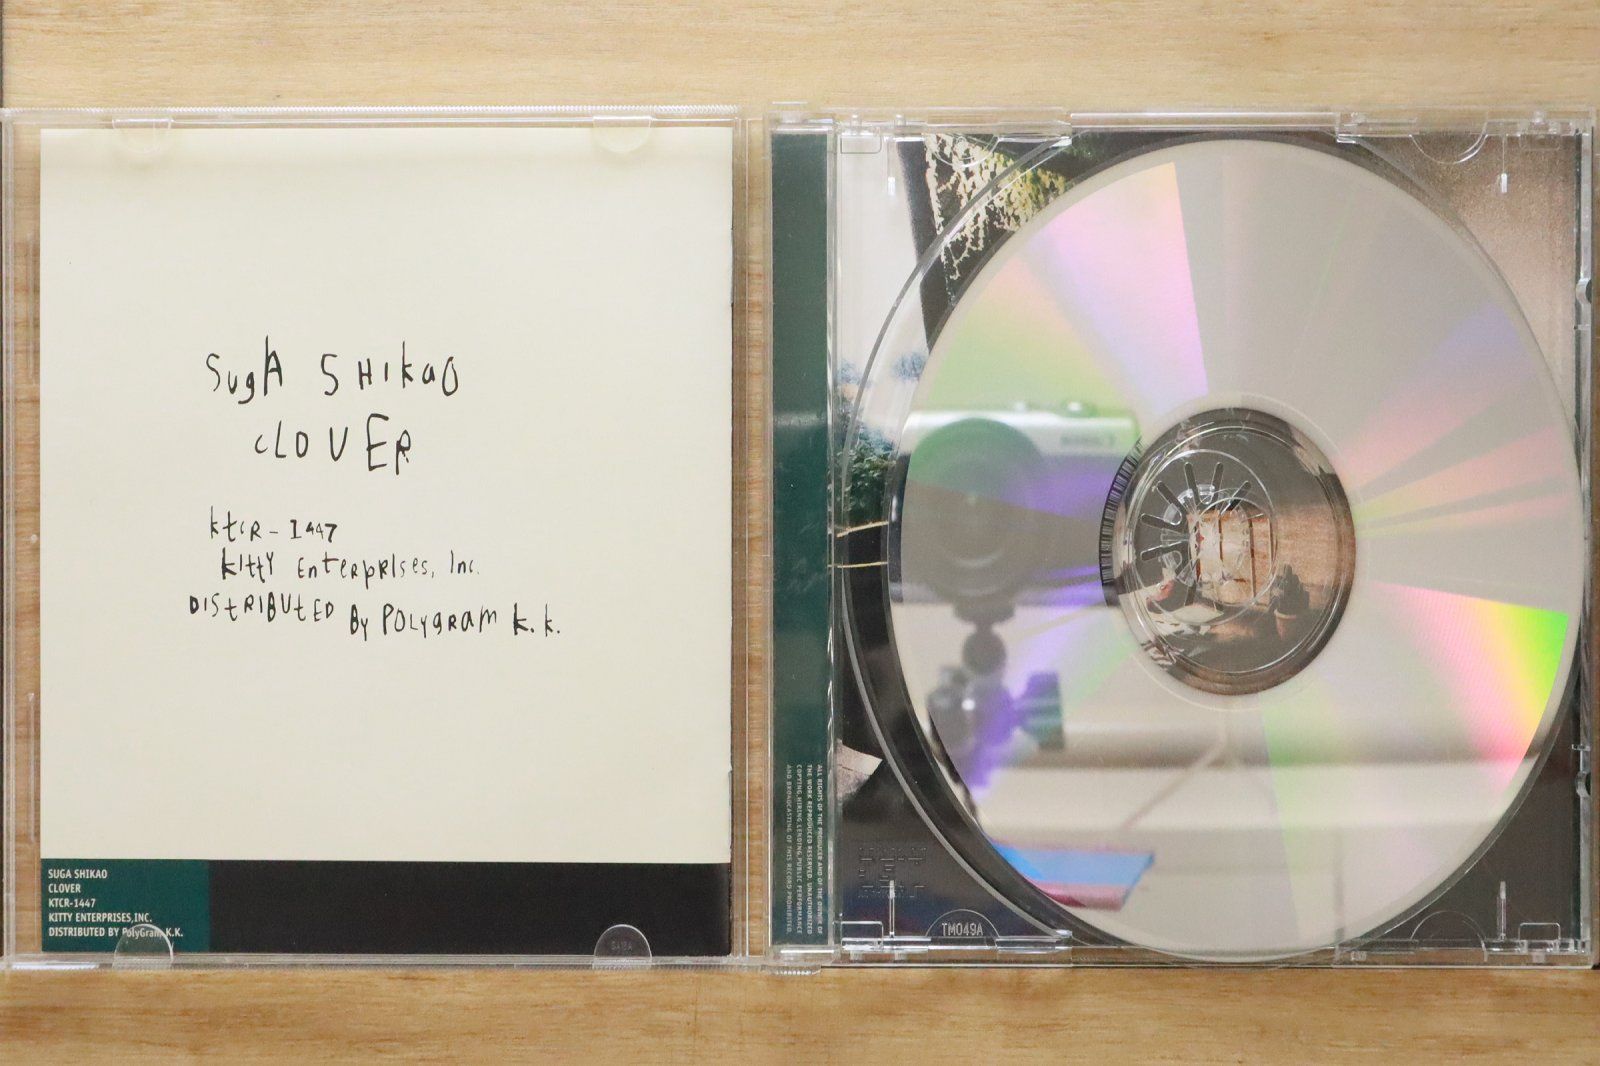 SugA SHIkaO
cLOVER
ktcR-1447
kIttY EnteRpRIses, Inc.
DIStRIBUtED By POLygRAm k.k.
SUGA SHIKAO
CLOVER
KTCR-1447
KITTY ENTERPRISES,INC.
DISTRIBUTED BY PolyGram K.K.
ALL RIGHTS OF THE PRODUCER AND OF THE OWNER OF
THE WORK REPRODUCED RESERVED. UNAUTHORIZED
COPYING,HIRING,LENDING,PUBLIC PERFORMANCE
AND BROADCASTING OF THIS RECORD PROHIBITED.
TM049A